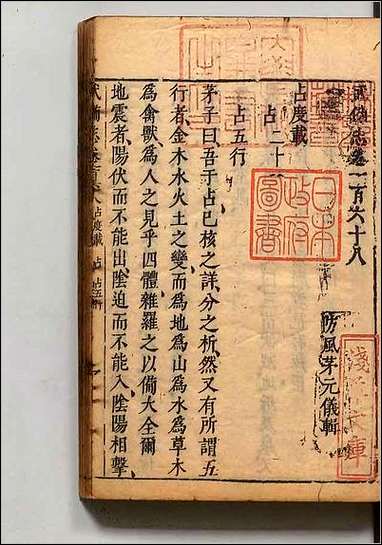 武備志卷一百六十八
防風茅元儀輯
占度載
占二十
占五行
茅子曰吾于占已核之詳分之析然又有所謂五
行者金木水火土之變而爲地爲山爲水爲草木
爲禽獸爲人之見乎四體雜羅之以備大全爾
地震者陽伏而不能出陰迫而不能入陰陽相擊
日本
政府
圖書
淺草文庫
武備志卷一百六十八 占度載 占 占五行 一